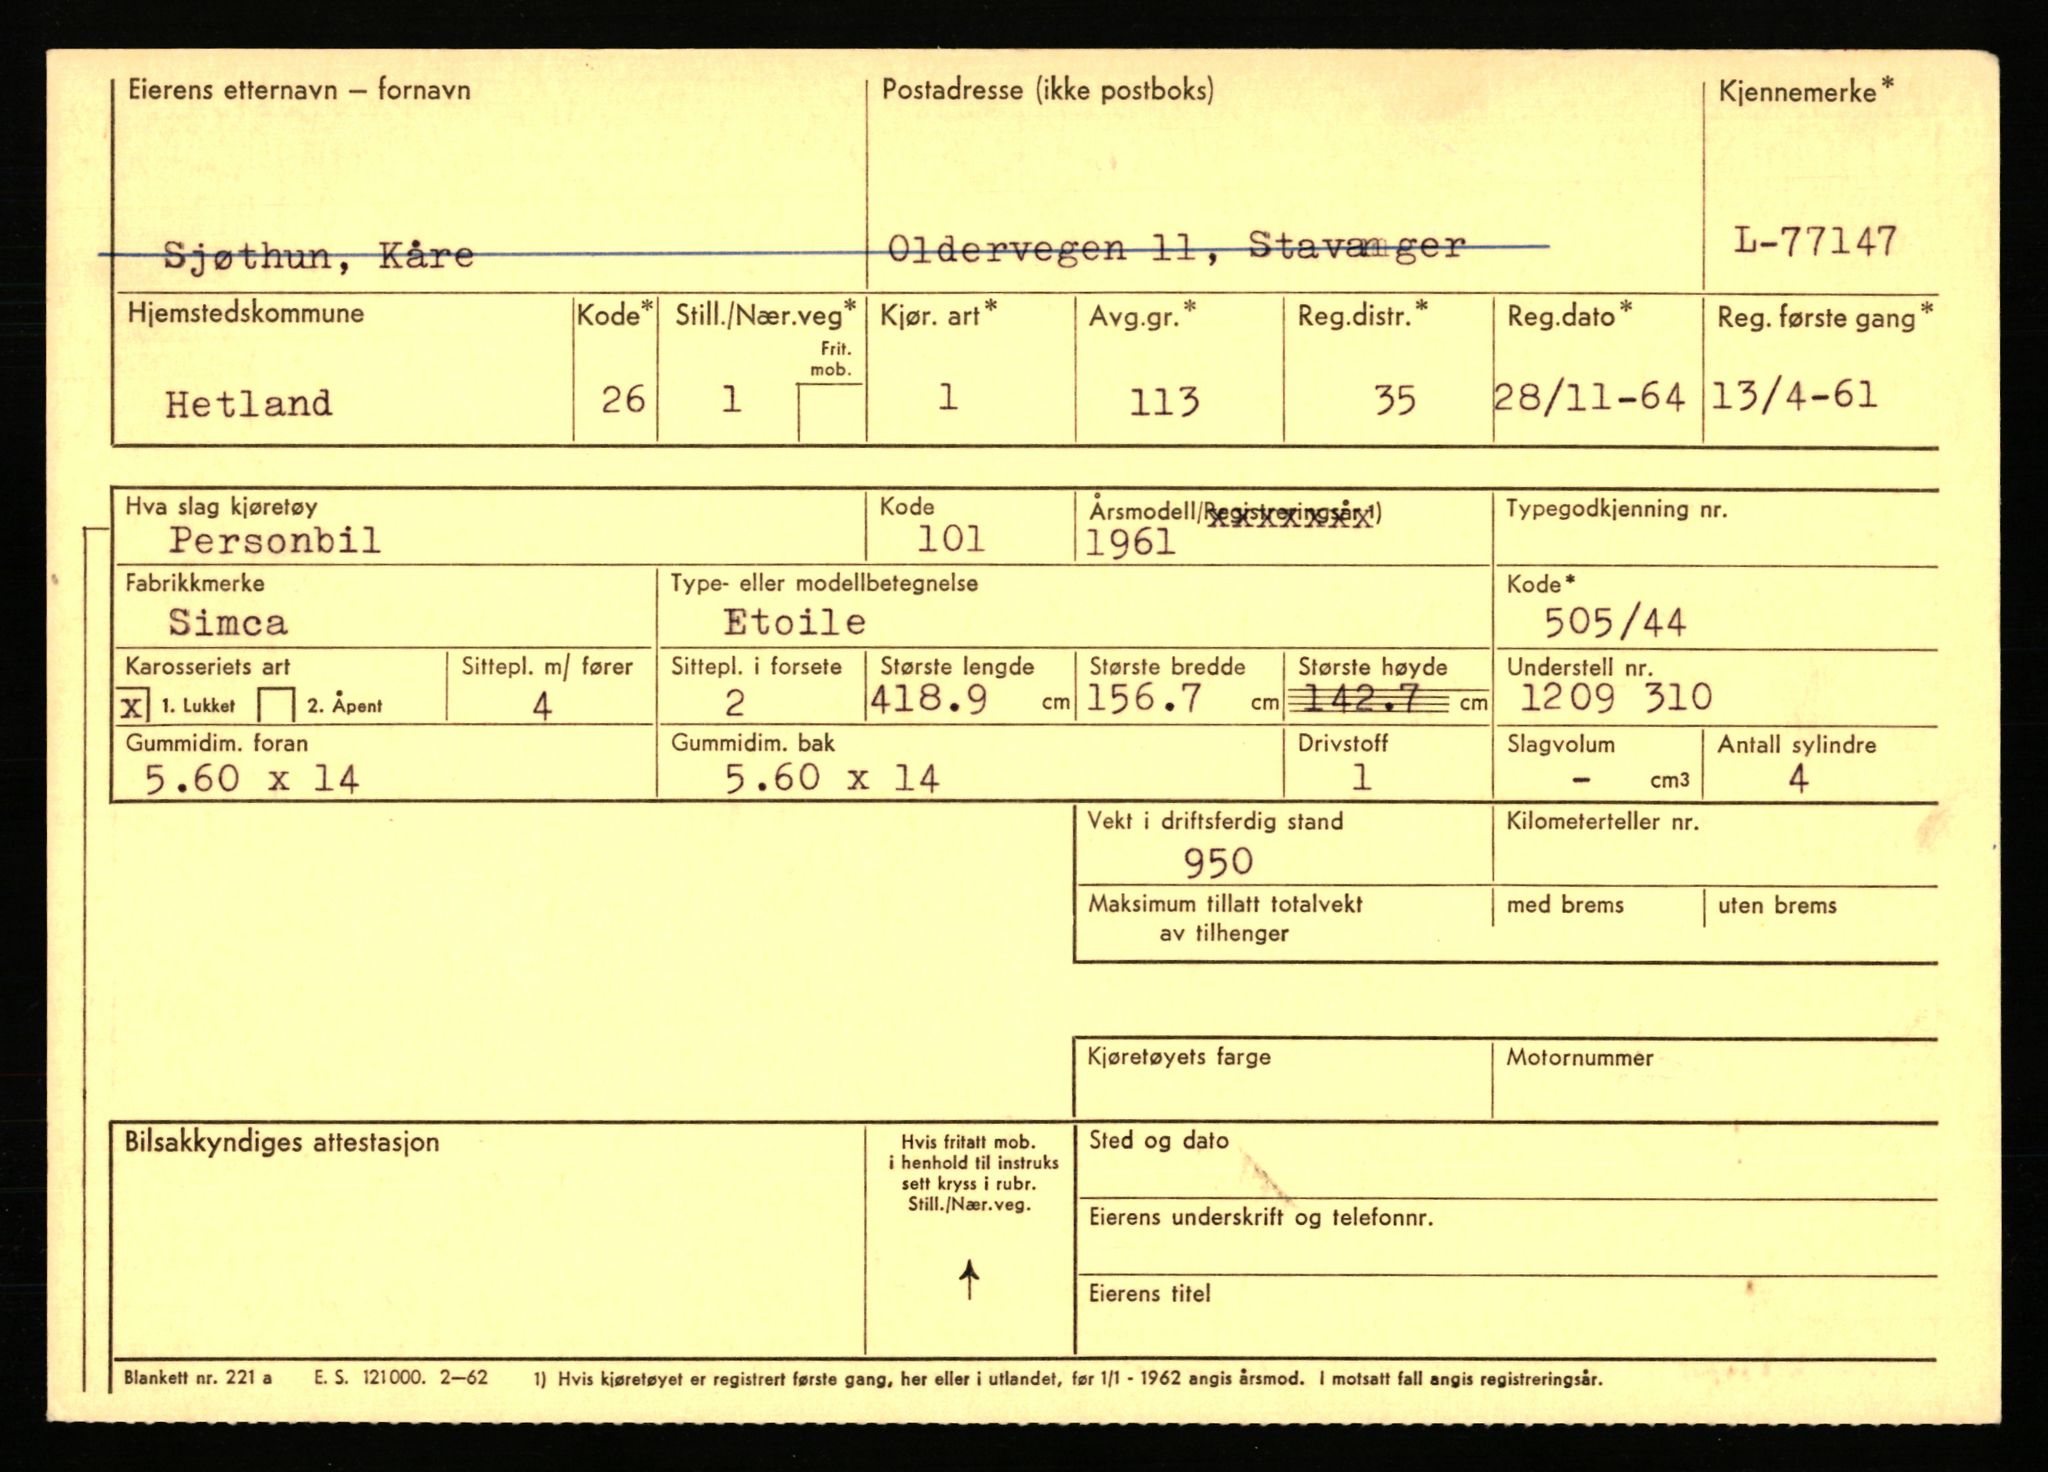 Eierens etternavn – fornavn Postadresse (ikke postboks) Kjennemerke*
Sjøthun, Kåre Oldervegen 11, Stavanger L-77147
Hjemstedskommune Kode* Still./Nær.veg* Kjør. art* Avg.gr.* Reg.distr.* Reg.dato* Reg. første gang*
Frit.
mob.
Hetland 26 1 1 113 35 28/11-64 13/4-61
Hva slag kjøretøy Kode Årsmodell/Registreringsår 1) Typegodkjenning nr.
Personbil 101 1961
Fabrikkmerke Type- eller modellbetegnelse Kode*
Simca Etoile 505/44
Karosseriets art Sittepl. m/ fører Sittepl. i forsete Største lengde Største bredde Største høyde Understell nr.
x 1. Lukket 2. Åpent 4 2 418.9 cm 156.7 cm 142.7 cm 1209 310
Gummidim. foran Gummidim. bak Drivstoff Slagvolum Antall sylindre
5.60 x 14 5.60 x 14 1 - cm3 4
Vekt i driftsferdig stand Kilometerteller nr.
950
Maksimum tillatt totalvekt med brems uten brems
av tilhenger
Kjøretøyets farge Motornummer
Bilsakkyndiges attestasjon Hvis fritatt mob. Sted og dato
i henhold til instruks
sett kryss i rubr.
Still./Nær.veg.
Eierens underskrift og telefonnr.
Eierens titel
Blankett nr. 221 a E. S. 121000. 2–62 1) Hvis kjøretøyet er registrert første gang, her eller i utlandet, før 1/1 - 1962 angis årsmod. I motsatt fall angis registreringsår.